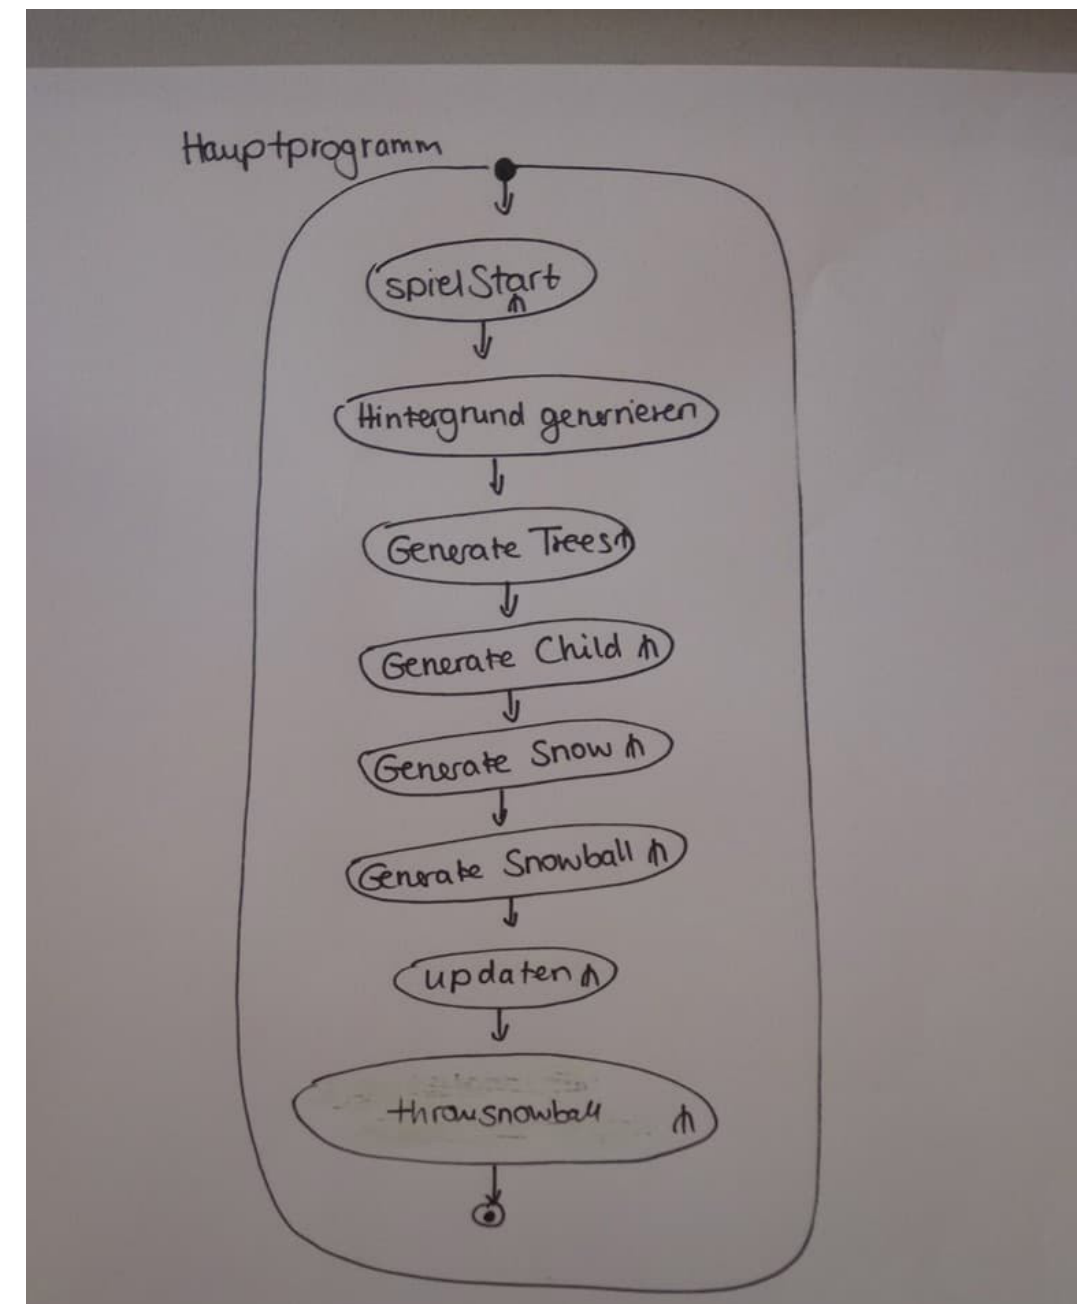 Hauptprogramm
spielStart
Hintergrund generieren
Generate Trees
Generate Child
Generate Snow
Generate Snowball
updaten
throwsnowball